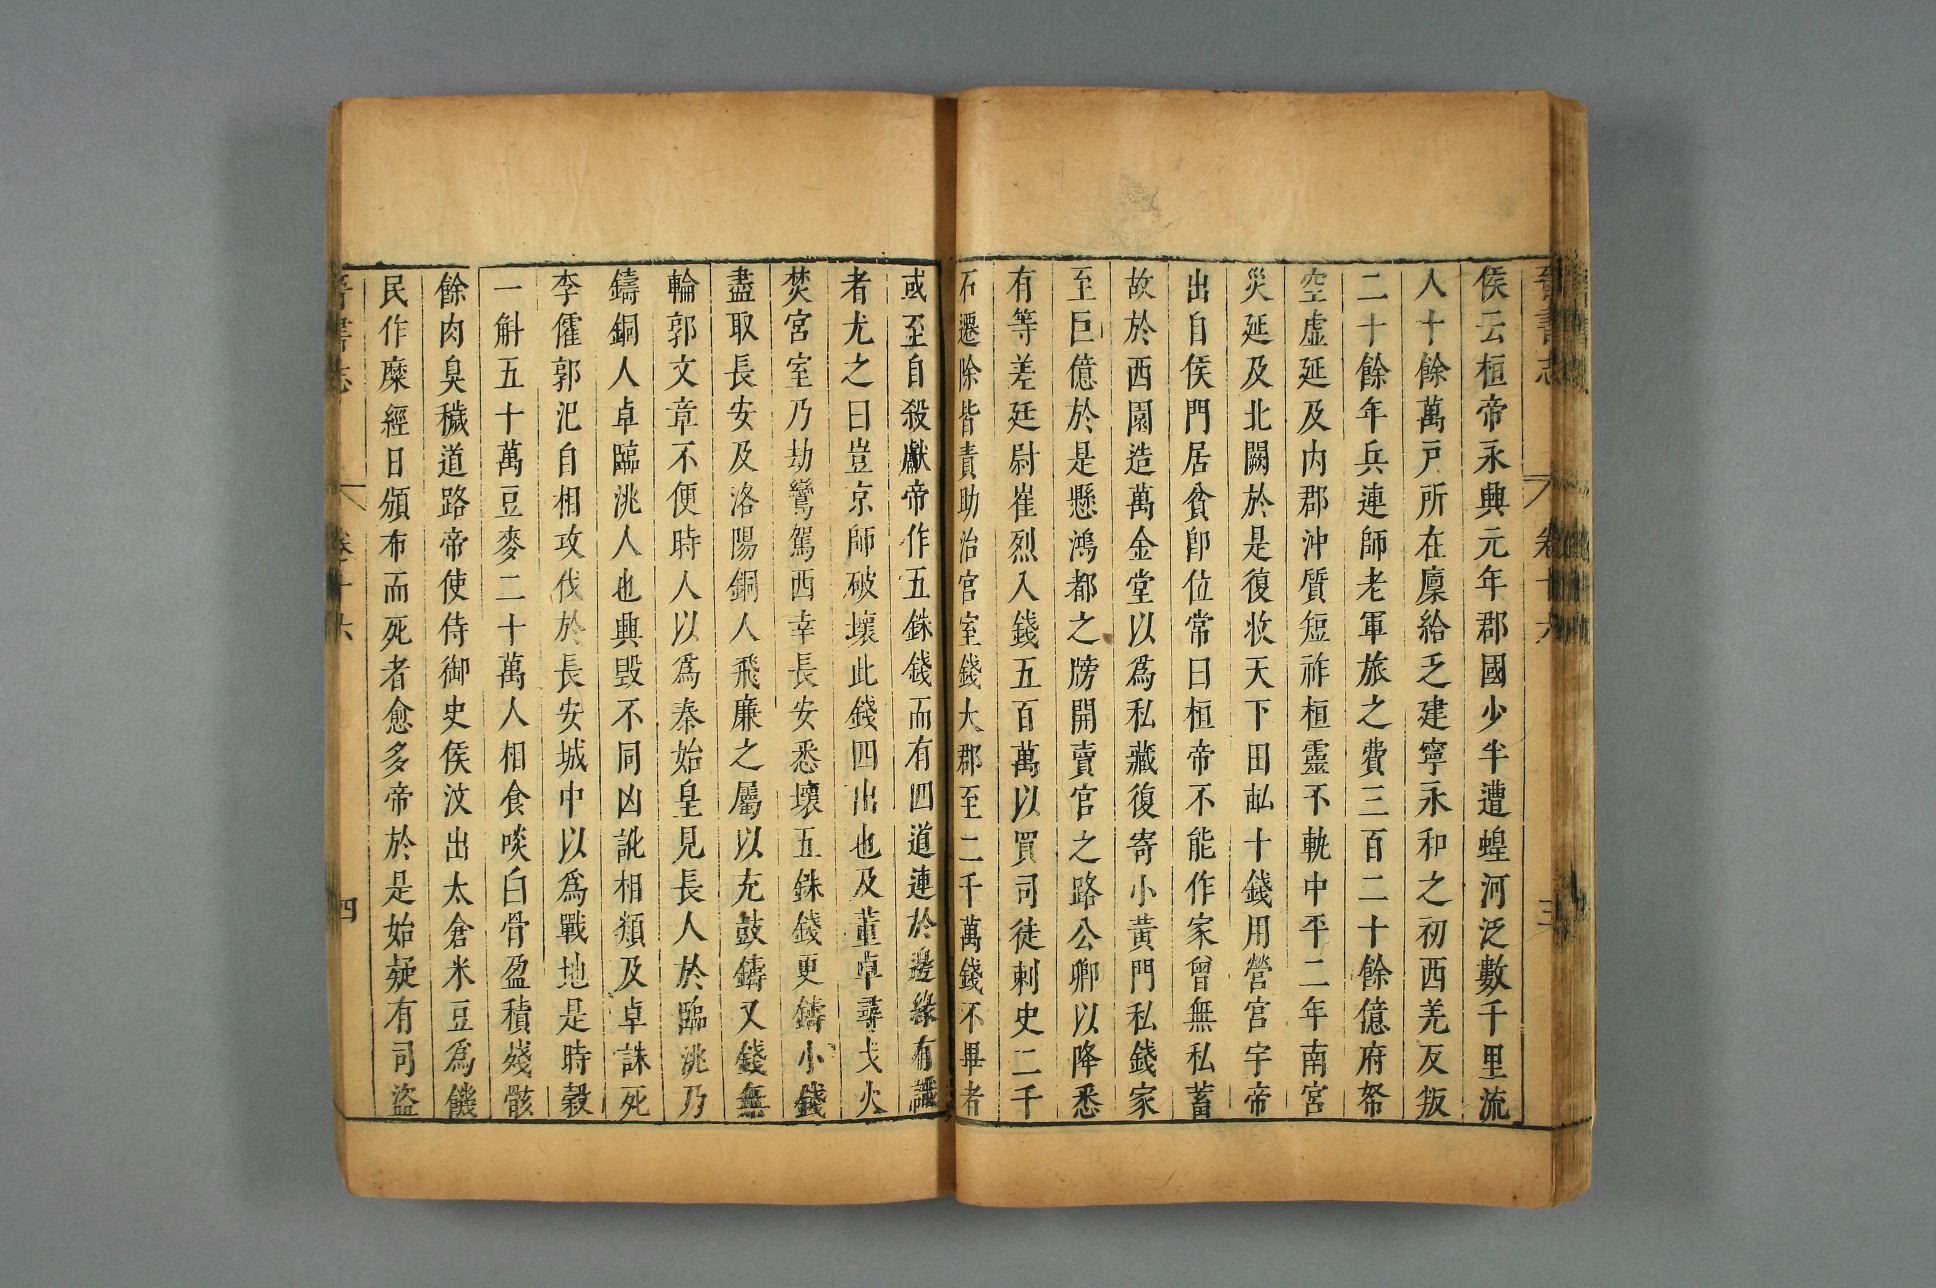 晉書志 卷十六 三
侯云桓帝永興元年郡國少半遭蝗河泛數千里流
人十餘萬戸所在廩給乏建寧永和之初西羌反叛
二十餘年兵連師老軍旅之費三百二十餘億府帑
空虛延及內郡沖質短祚桓靈不軌中平二年南宮
災延及北闕於是復收天下田畝十錢用營宮宇帝
出自侯門居貧卽位常曰桓帝不能作家曾無私蓄
故於西園造萬金堂以爲私藏復寄小黃門私錢家
至巨億於是懸鴻都之牓開賣官之路公卿以降悉
有等差廷尉崔烈入錢五百萬以買司徒刺史二千
石遷除皆責助治宮室錢大郡至二千萬錢不畢者
或至自殺獻帝作五銖錢而有四道連於邊緣有識
者尤之曰豈京師破壞此錢四出也及董卓尋戈火
焚宮室乃劫鸞駕西幸長安悉壞五銖錢更鑄小錢
盡取長安及洛陽銅人飛廉之屬以充鼓鑄又錢無
輪郭文章不便時人以爲秦始皇見長人於臨洮乃
鑄銅人卓臨洮人也興毀不同凶訛相類及卓誅死
李傕郭汜自相攻伐於長安城中以爲戰地是時穀
一斛五十萬豆麥二十萬人相食啖白骨盈積殘骸
餘肉臭穢道路帝使侍御史侯汶出太倉米豆爲饑
民作糜經日頒布而死者愈多帝於是始疑有司盜
晉書志 卷十六 四